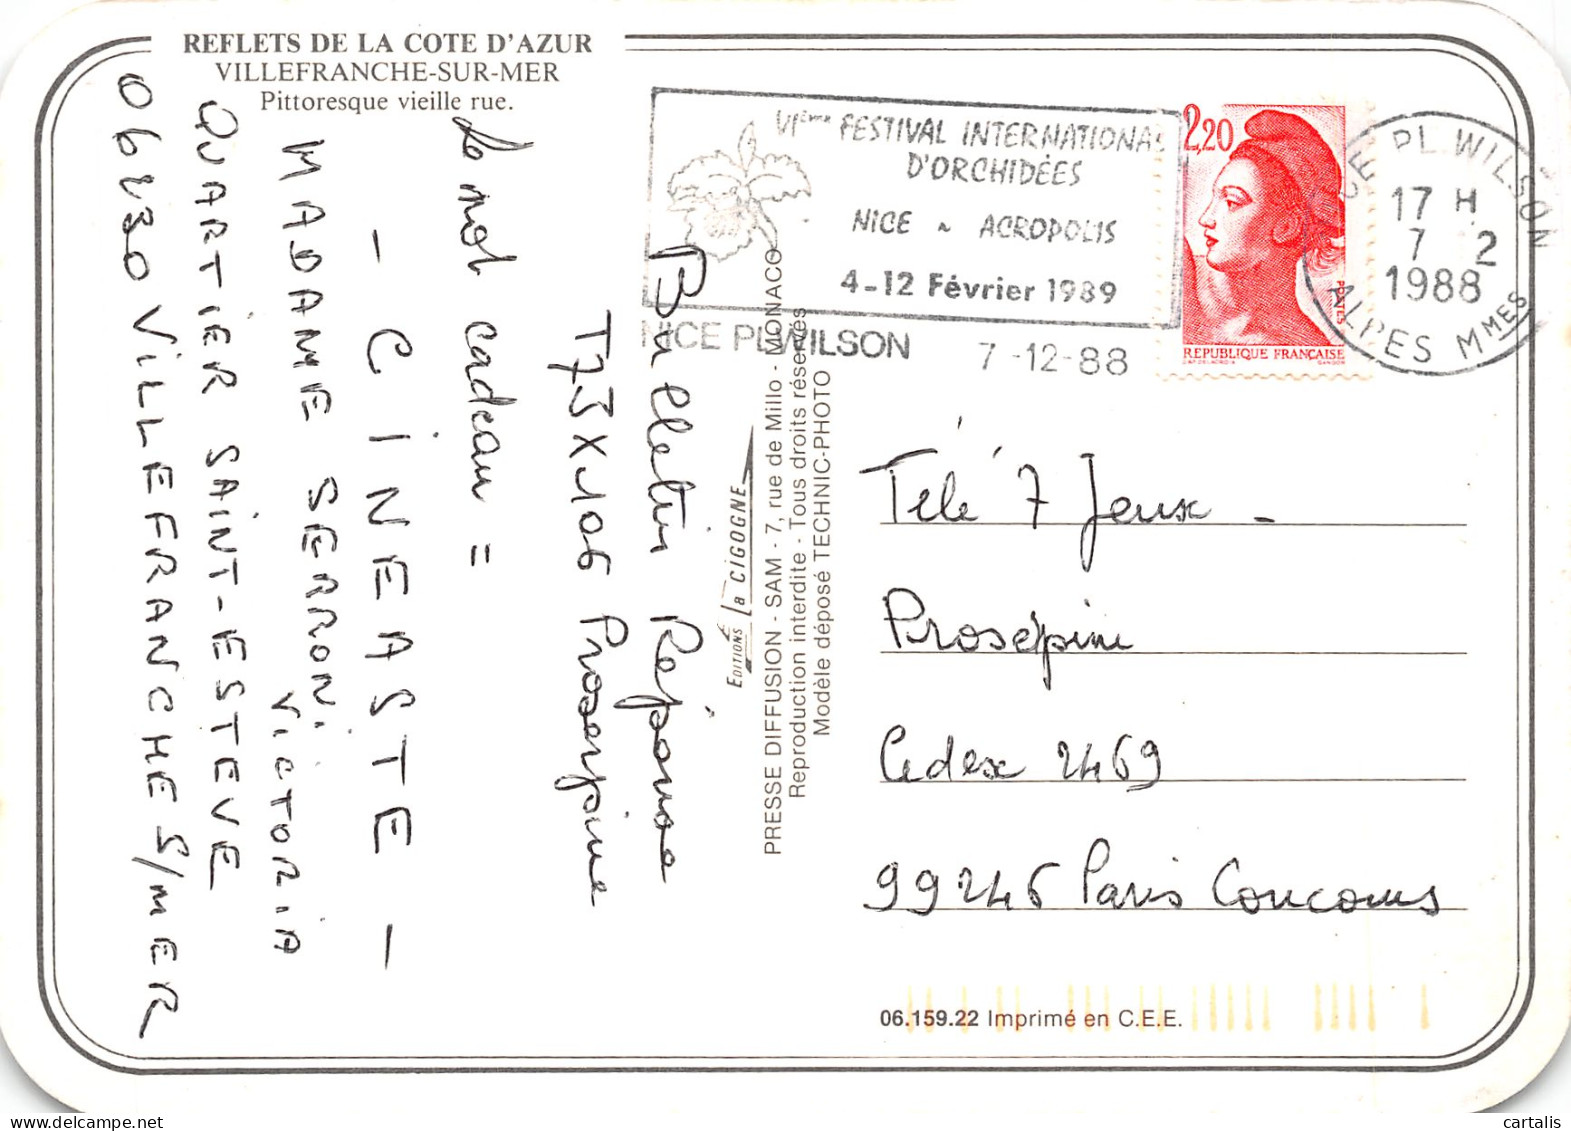 REFLETS DE LA COTE D'AZUR
VILLEFRANCHE-SUR-MER
Pittoresque vieille rue.
VIème FESTIVAL INTERNATIONAL
D'ORCHIDÉES
NICE ~ ACROPOLIS
4-12 Février 1989
NICE PL WILSON 7-12-88
2,20
POSTES
REPUBLIQUE FRANÇAISE
CE PL. WILSON
17 H
7 12
1988
ALPES MMES
Bulletin Réponse
T7J X 106 Proserpine
Le mot cadeau =
- CINEASTE -
MADAME SERRONI
VICTORIA
QUARTIER SAINT-ESTEVE
06230 VILLEFRANCHE S/MER
EDITIONS La CIGOGNE
PRESSE DIFFUSION - SAM - 7, rue de Millo - MONACO
Reproduction interdite - Tous droits réservés
Modèle déposé TECHNIC-PHOTO
Télé 7 Jeux -
Prosepine
Cedex 2469
99246 Paris Concours
06.159.22 Imprimé en C.E.E.
delcampe.net
cartalis